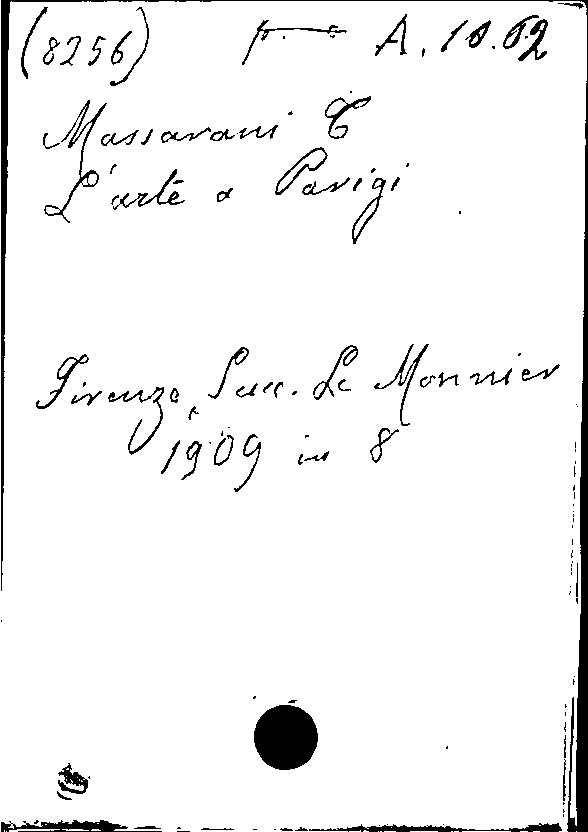 (8256) A. 10.62
Massarani T
L'arte a Parigi
Firenze, Succ. Le Monnier
1909 in 8